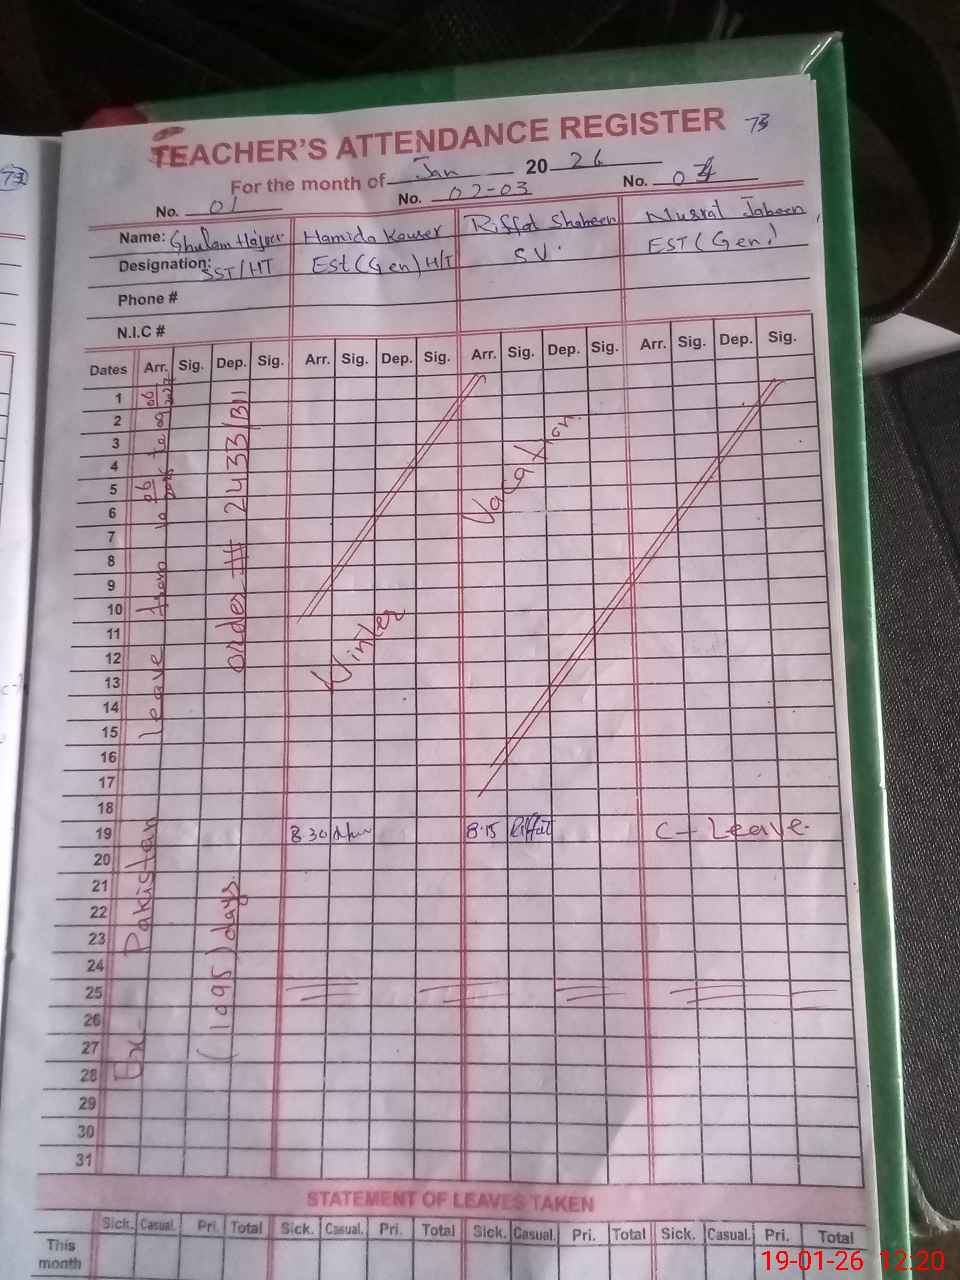 73
TEACHER'S ATTENDANCE REGISTER
For the month of Jan 2026
No. 01 No. 02-03 No. 04
Name: Ghulam Hamida Kouser Riffat Shaheen Nusrat Jabeen
Designation: SST/HT Est(Gen) H/T SV EST(Gen)
Phone #
N.I.C #
Dates Arr. Sig. Dep. Sig. Arr. Sig. Dep. Sig. Arr. Sig. Dep. Sig. Arr. Sig. Dep. Sig.
1
2
3
4
5
6
7
8
9
10
11
12
13
14
15
16
17
18
19 8.30 8.15 Riffat C-Leave
20
21
22
23
24
25
26
27
28
29
30
31
Ex- Pakistan leave from to
order # 2433/BII
(1095) days
Winter Vacation
STATEMENT OF LEAVES TAKEN
Sick. Casual. Pri. Total Sick. Casual. Pri. Total Sick. Casual. Pri. Total Sick. Casual. Pri. Total
This month
19-01-26 12:20